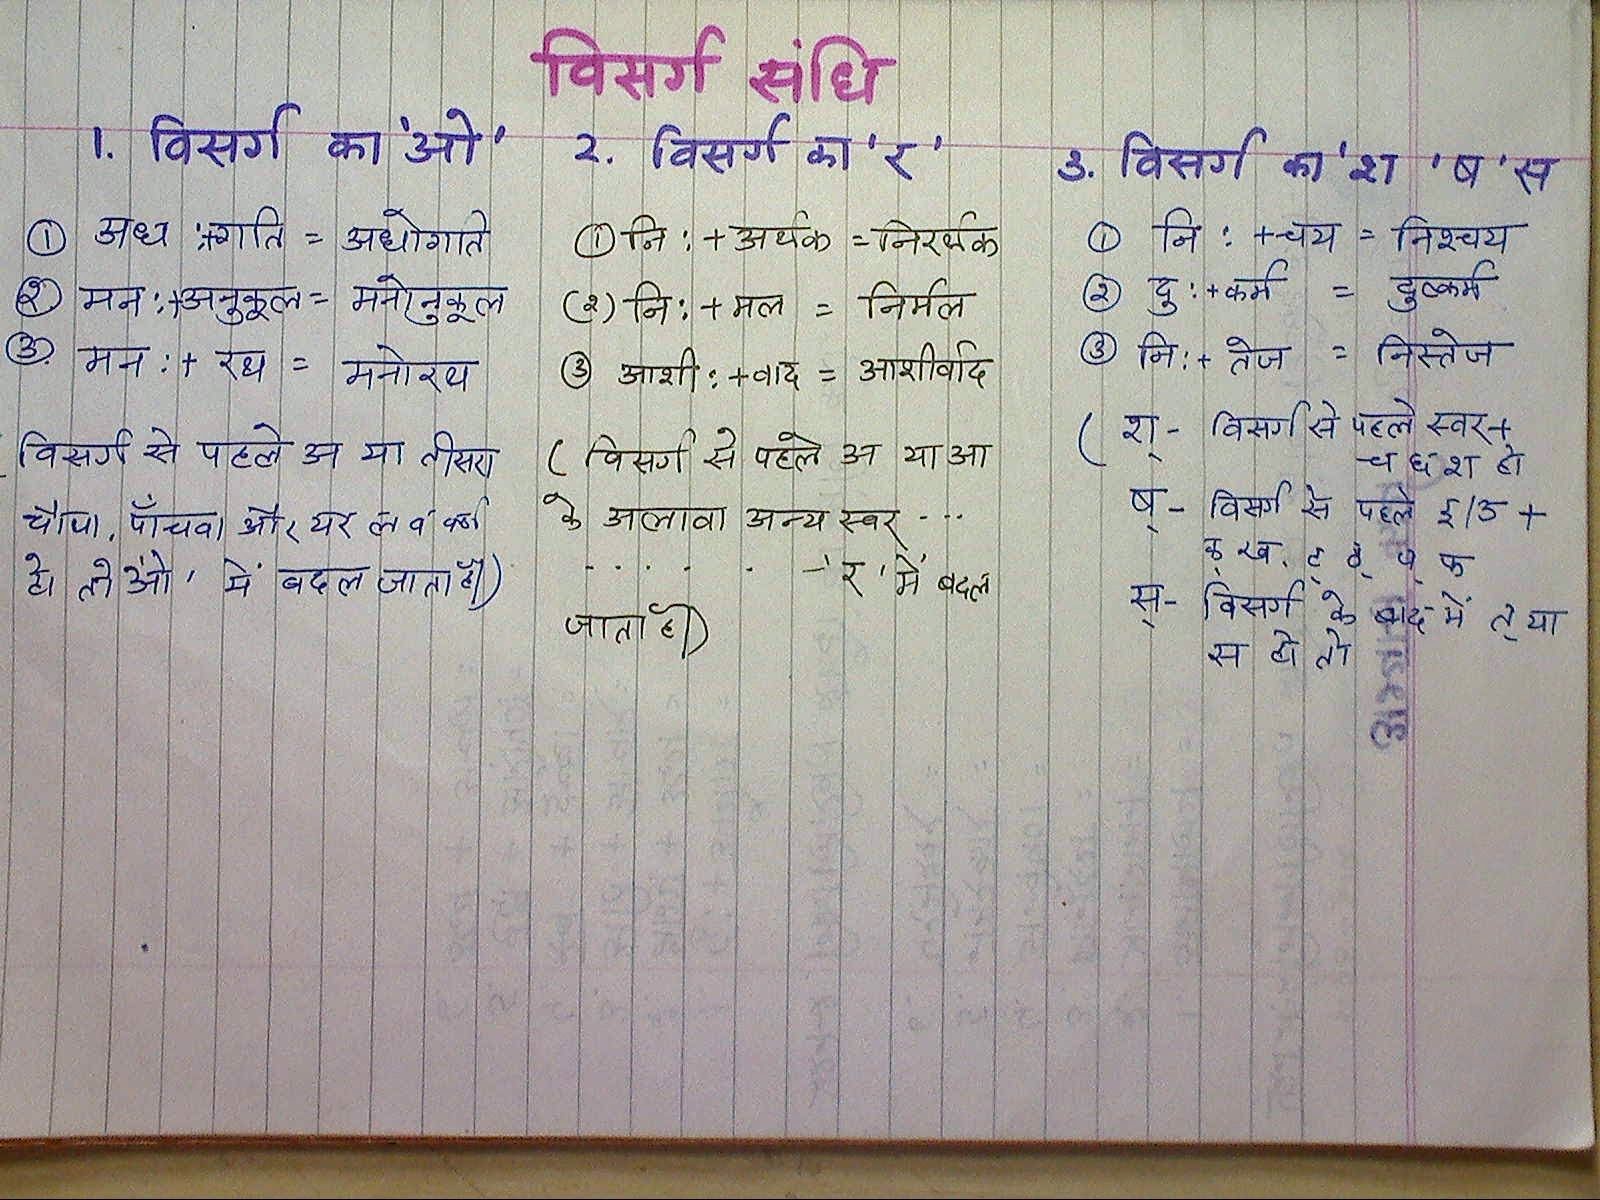 विसर्ग संधि
1. विसर्ग का 'ओ'
① अध :+गति = अधोगति
② मन :+अनुकूल = मनोनुकूल
③ मन :+ रथ = मनोरथ
विसर्ग से पहले अ या तीसरा
चौथा, पाँचवा और य र ल व वर्ण
हो तो 'ओ' में बदल जाता है।)
२. विसर्ग का 'र'
① नि : + अर्थक = निरर्थक
(२) नि : + मल = निर्मल
③ आशी : + वाद = आशीर्वाद
( विसर्ग से पहले अ या आ
के अलावा अन्य स्वर ...
. . . . . . - 'र' में बदल
जाता है।)
3. विसर्ग का 'श 'ष 'स
① नि : + चय = निश्चय
② दु : + कर्म = दुष्कर्म
③ नि : + तेज = निस्तेज
( श् - विसर्ग से पहले स्वर +
च छ श हो
ष् - विसर्ग से पहले इ/उ +
क ख, ट् ठ् प् फ
स् - विसर्ग के बाद में त् या
स हो तो